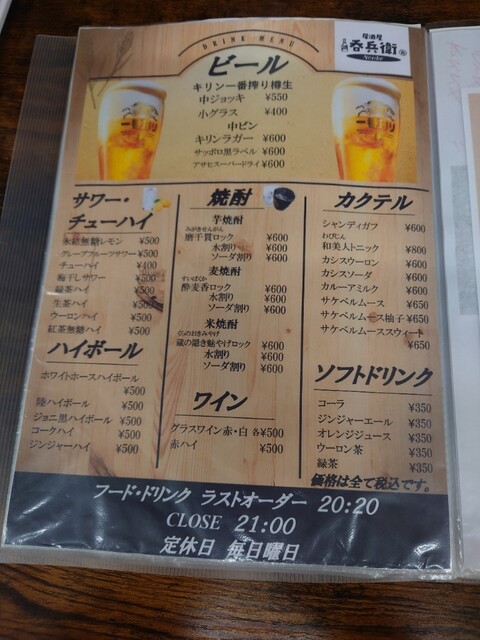 DRINK MENU
居酒屋
呑兵衛
Nonbe
ビール
キリン一番搾り樽生
中ジョッキ ¥550
小グラス ¥400
中ビン
キリンラガー ¥600
サッポロ黒ラベル ¥600
アサヒスーパードライ ¥600
サワー・
チューハイ
氷結無糖レモン ¥500
グレープフルーツサワー ¥500
チューハイ ¥400
梅干しサワー ¥500
緑茶ハイ ¥500
生茶ハイ ¥500
ウーロンハイ ¥500
紅茶無糖ハイ ¥500
ハイボール
ホワイトホースハイボール
¥500
陸ハイボール ¥500
ジョニ黒ハイボール ¥500
コークハイ ¥500
ジンジャーハイ ¥500
焼酎
芋焼酎
みがきせんがん
磨千貫ロック ¥600
水割り ¥600
ソーダ割り ¥600
麦焼酎
すいばくか
酔麦香ロック ¥600
水割り ¥600
ソーダ割り ¥600
米焼酎
くらのおきみやげ
蔵の隠き魅やげロック
¥600
水割り ¥600
ソーダ割り ¥600
ワイン
グラスワイン赤・白 各¥500
赤ハイ ¥500
カクテル
シャンディガフ ¥600
わびじん
和美人トニック ¥800
カシスウーロン ¥600
カシスソーダ ¥600
カルーアミルク ¥600
サケベルムース ¥650
サケベルムース柚子 ¥650
サケベルムーススウィート
¥650
ソフトドリンク
コーラ ¥350
ジンジャーエール ¥350
オレンジジュース ¥350
ウーロン茶 ¥350
緑茶 ¥350
価格は全て税込です。
フード・ドリンク ラストオーダー 20:20
CLOSE 21:00
定休日 毎日曜日